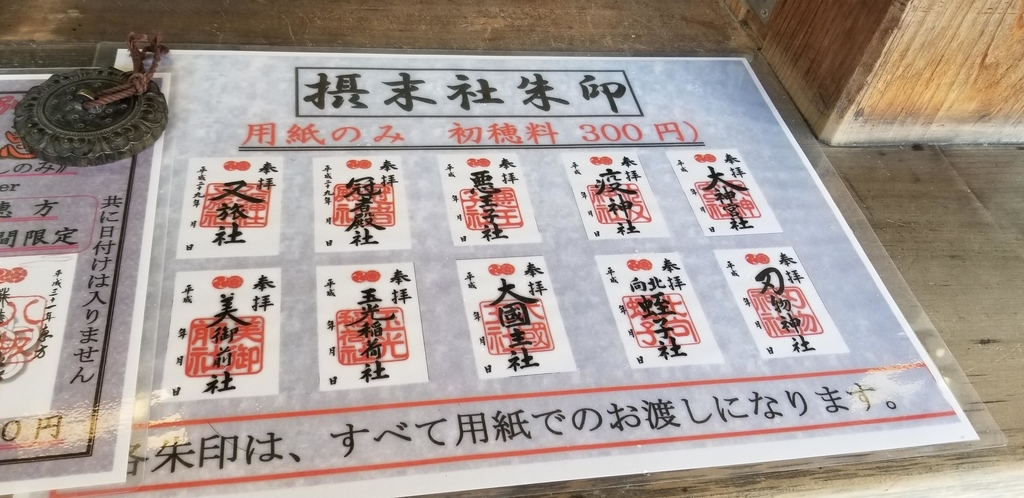 摂末社朱印
用紙のみ　初穂料 300円)
奉拝
又旅社
平成二十九年 月 日
奉拝
冠者殿社
平成二十九年 月 日
奉拝
悪王子社
平成 年 月 日
奉拝
疫神社
平成 年 月 日
奉拝
大神宮社
平成 年 月 日
奉拝
美御前社
平成 年 月 日
奉拝
玉光稲荷社
平成 年 月 日
奉拝
大國主社
平成 年 月 日
奉拝
北向蛭子社
平成 年 月 日
奉拝
刃物神社
平成 年 月 日
朱印は、すべて用紙でのお渡しになります。
しのみ
er
恵方
間限定
共に日付けは入りません
平成三十一年 恵方
0円